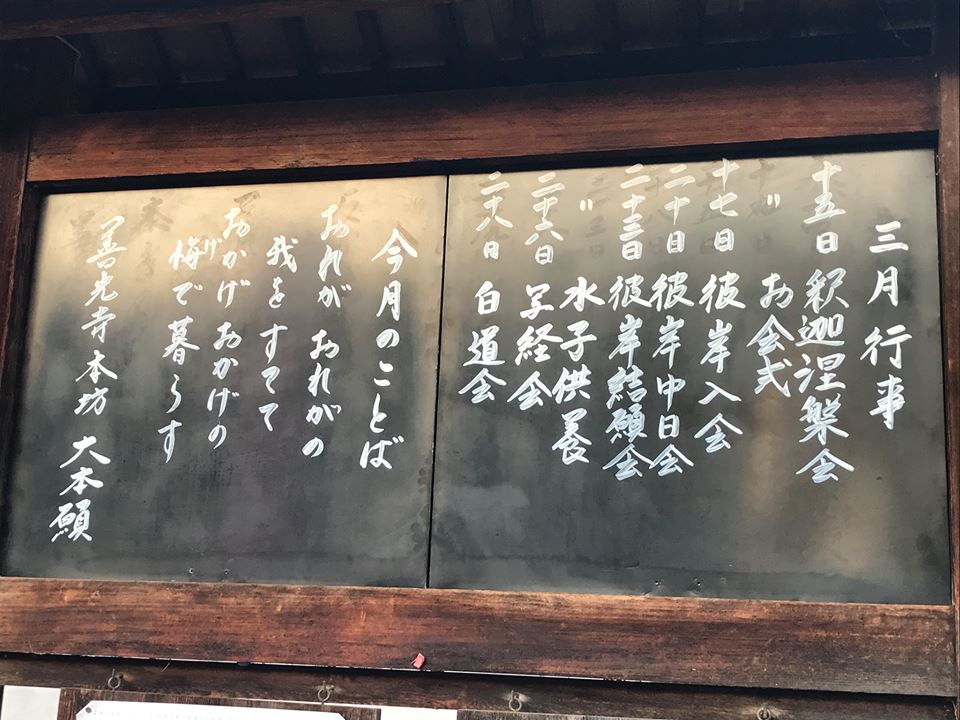 三月行事
十五日 釈迦涅槃会
〃 お会式
十七日 彼岸入会
二十日 彼岸中日会
二十三日 彼岸結願会
〃 水子供養
二十六日 写経会
二十八日 白道会
今月のことば
おれが おれがの
我をすてて
おかげおかげの
で暮らす
善光寺本坊 大本願